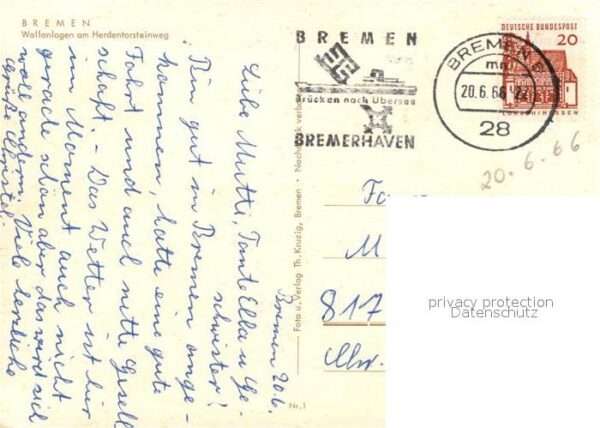 BREMEN
Wallanlagen am Herdentorsteinweg
Bremen 20.6.
Liebe Mutti, Tante Ella u. Ge-
schwister!
Bin gut in Bremen ange-
kommen, hatte eine gute
Fahrt und auch nette Gesell
schaft. - Das Wetter ist hier
im Moment auch nicht
gerade schön aber das wird sich
wohl ändern. Viele herzliche
Grüße Christel.
Foto u. Verlag Th. Kruzig, Bremen · Nachdruck verboten
Nr. 1
BREMEN
Brücken nach Übersee
BREMERHAVEN
BREMEN 5
mn
20.6.66
28
DEUTSCHE BUNDESPOST
20
LORSCH/HESSEN
20.6.66
Fa
M
817
privacy protection
Datenschutz